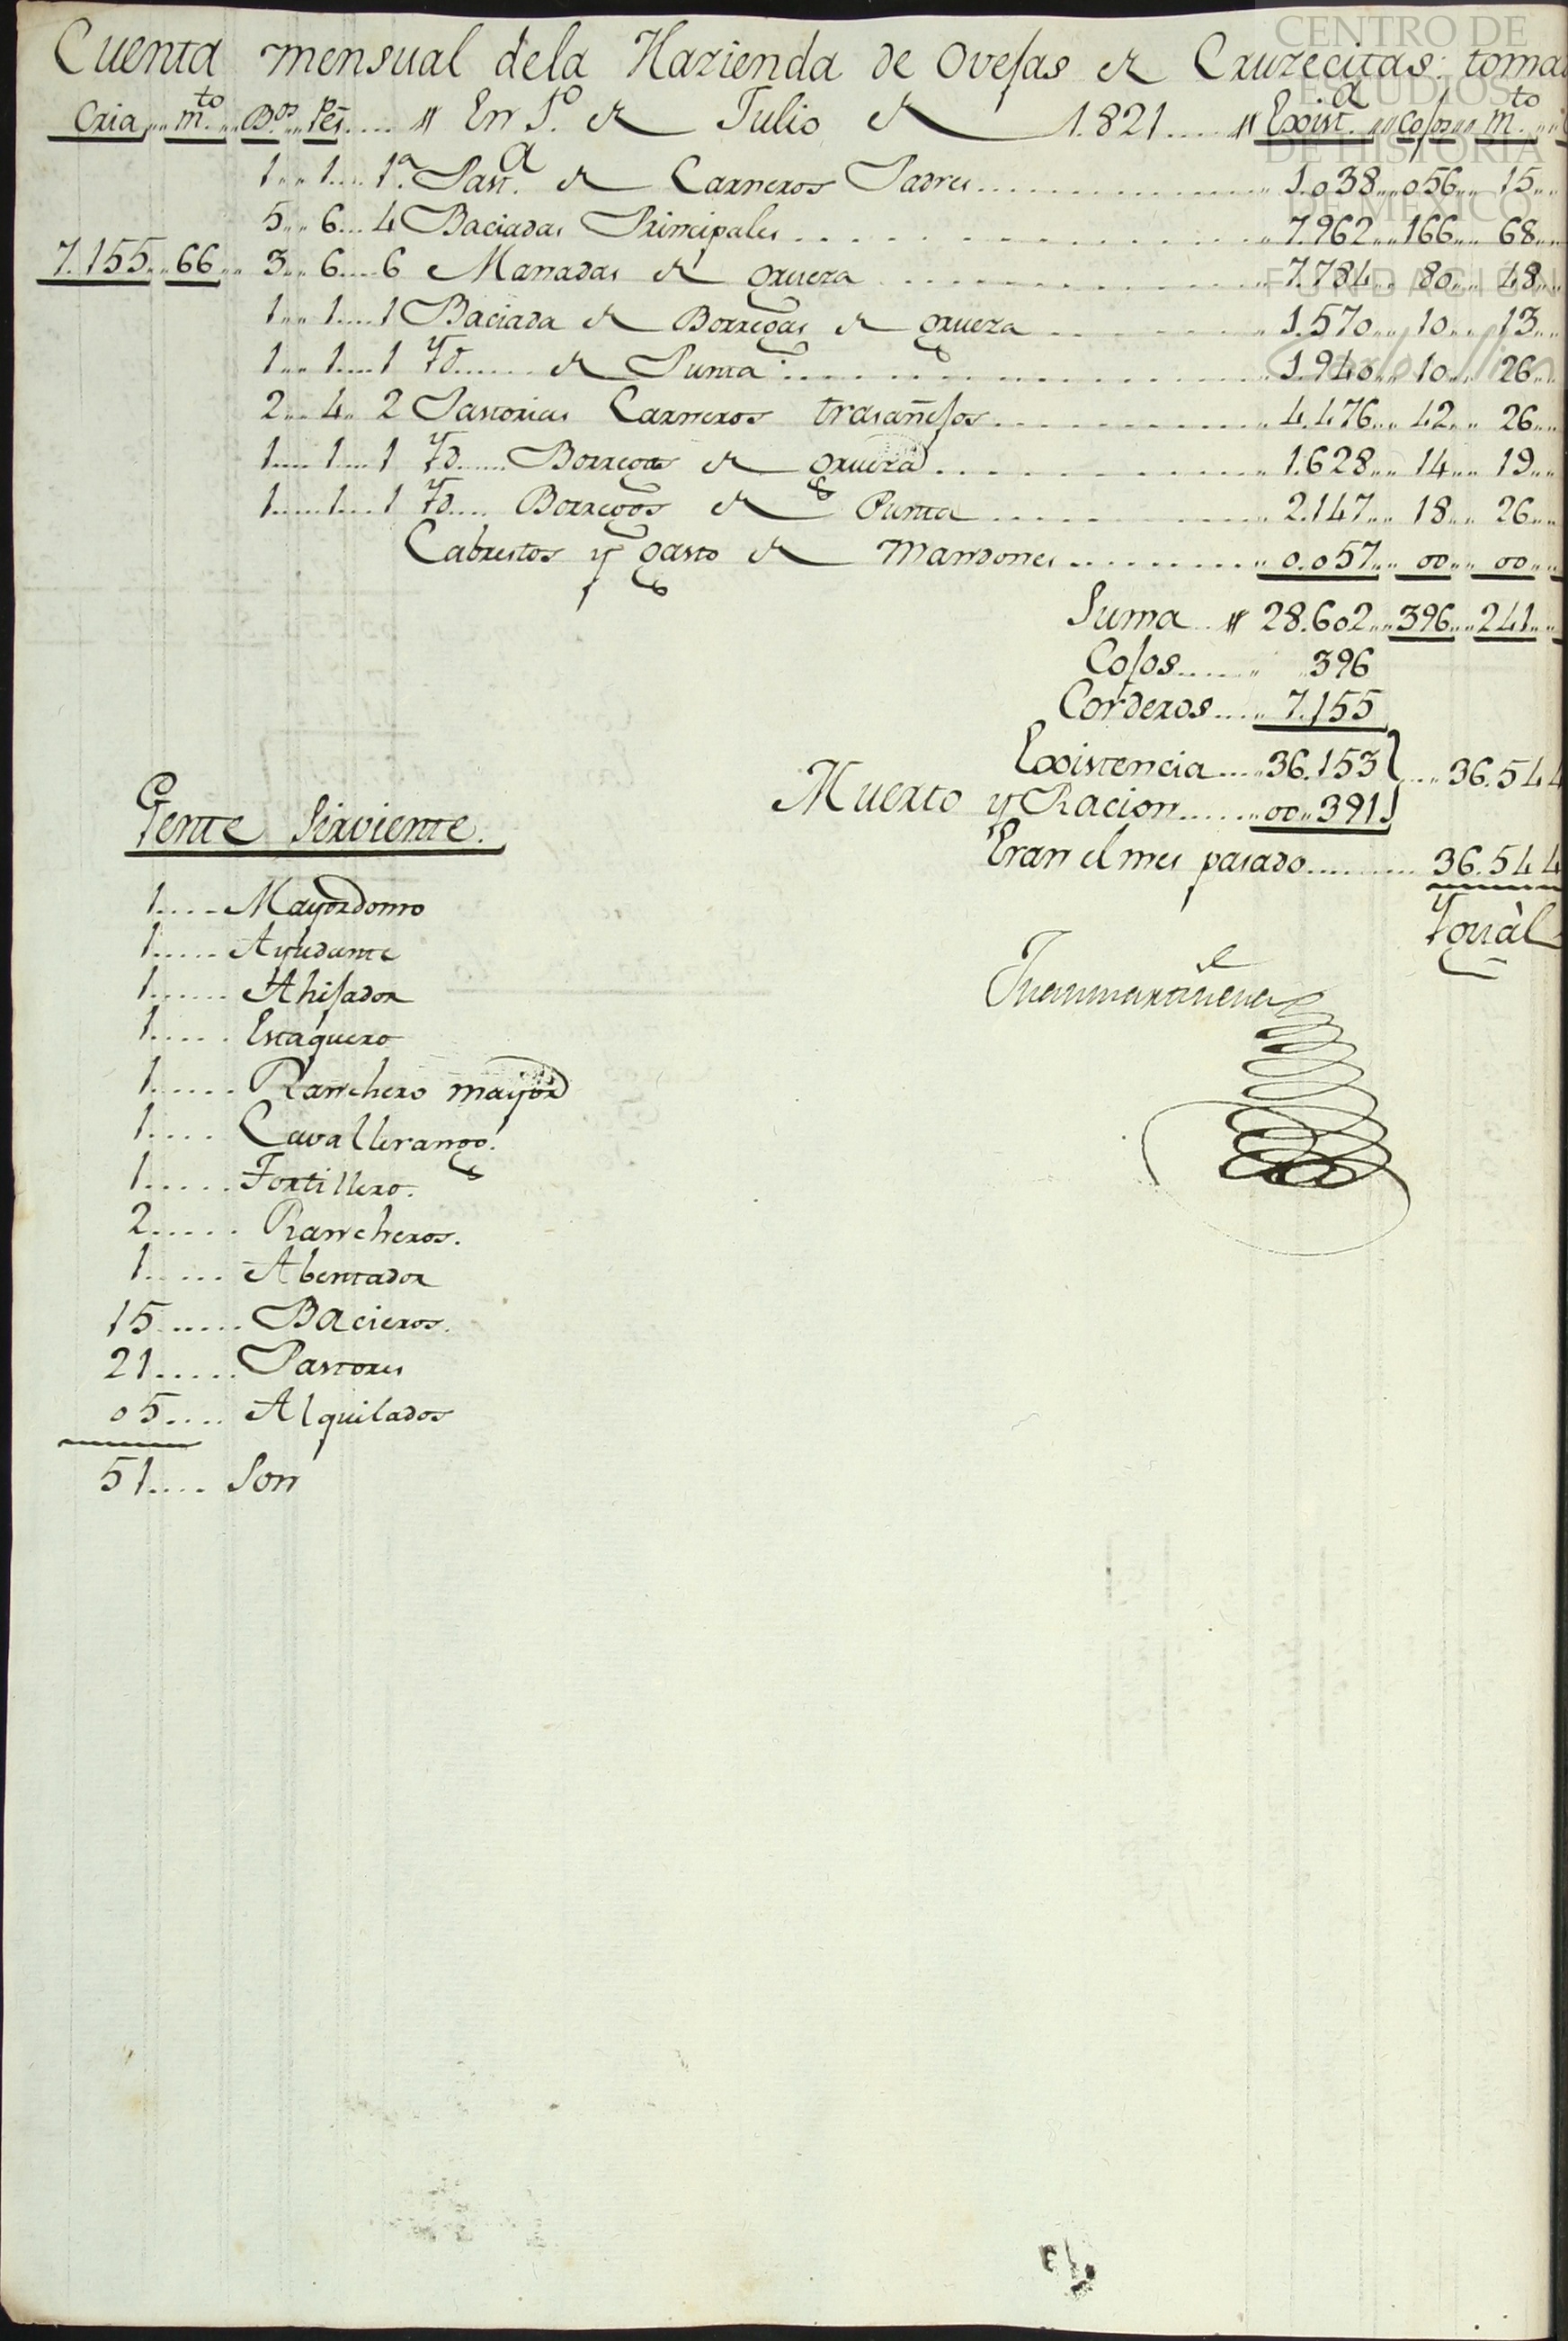 CENTRO DE
ESTUDIOS
DE HISTORIA
DE MEXICO
FUNDACION
Cuenta mensual dela Hazienda de Ovejas de Cruzecitas: toma
Cria,, m.to ,, B.os ,, P.es .... # En 1.º de Julio de 1.821 .... # Exist.a ,, Cojos ,, m.to
1 .. 1 .... 1.ª Past.a de Carneros Padres ........ 1.038 ,, 056 ,, 15 ,,
5 .. 6 ... 4 Baciadas Principales ........ 7.962 ,, 166 ,, 68 ,,
7.155 ,, 66 ,, 3 .. 6 .... 6 Manadas de grueza ........ 7.784 ,, 80 ,, 48 ,,
1 .. 1 .... 1 Baciada de Borregas de grueza ........ 1.570 ,, 10 ,, 13 ,,
1 .. 1 .... 1 Yd ...... de Punta ........ 1.940 ,, 10 ,, 26 ,,
2 .. 4 .. 2 Pastorias Carneros trasañejos ........ 4.476 ,, 42 ,, 26 ,,
1 .... 1 ... 1 Yd ..... Borregos de grueza ........ 1.628 ,, 14 ,, 19 ,,
1 .... 1 ... 1 Yd .... Borregos de Punta ........ 2.147 ,, 18 ,, 26 ,,
Cabrestos y gasto de Mandones ........ 0.057 ,, 00 ,, 00 ,,
Suma .. # 28.602 ,, 396 ,, 241 ,,
Cojos ...... 396
Corderos .... 7.155
Existencia .... 36.153 } .... 36.544
Muerto y Racion ...... 00 ,, 391
Eran el mes pasado ........ 36.544
Yguàl
Gente Sirviente.
1 .... Mayordomo
1 ..... Ayudante
1 ...... Ahijador
1 ..... Estaquero
1 ..... Ranchero mayor
1 .... Cavallerango.
1 ..... Tortillero.
2 ..... Rancheros.
1 ..... Abentador
15 ..... Bacieros.
21 ..... Pastores
05 .... Alquilados
51 .... Son